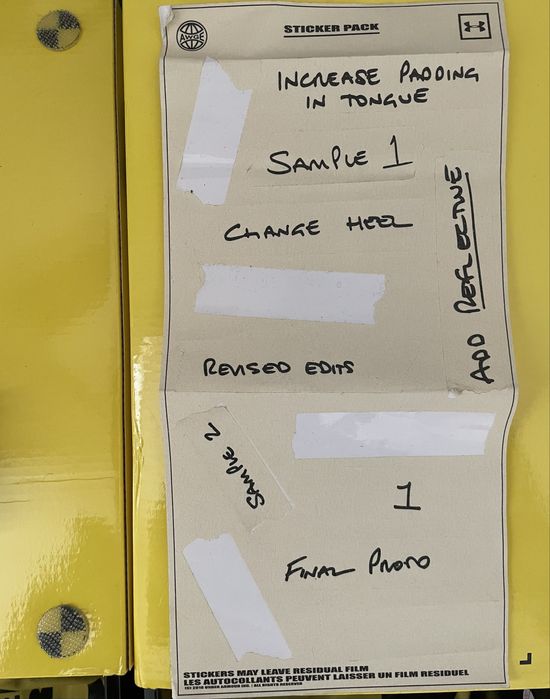 AWGE
STICKER PACK
INCREASE PADDING
IN TONGUE
SAMPLE 1
ADD REFLECTIVE
CHANGE HEEL
REVISED EDITS
SAMPLE 2
1
FINAL PROTO
STICKERS MAY LEAVE RESIDUAL FILM
LES AUTOCOLLANTS PEUVENT LAISSER UN FILM RESIDUEL
(C) 2018 UNDER ARMOUR INC. | ALL RIGHTS RESERVED